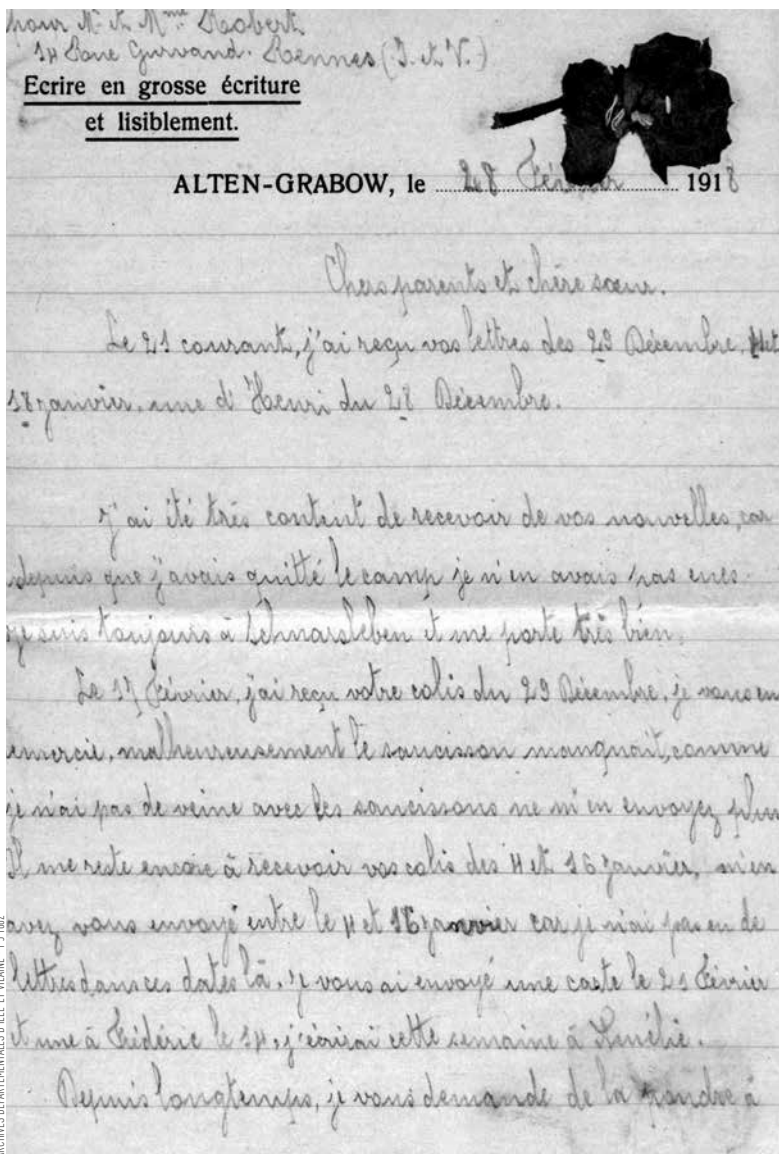 pour Mr et Mme Robert
14 Rue Gurvand. Rennes (I. et V.)
Ecrire en grosse écriture
et lisiblement.
ALTEN-GRABOW, le 28 Février 1918
Chers parents et chère sœur.
Le 21 courant, j'ai reçu vos lettres des 29 Décembre, et
18 janvier, une d'Henri du 28 Décembre.
J'ai été très content de recevoir de vos nouvelles, car
depuis que j'avais quitté le camp je n'en avais pas eues.
Je suis toujours à Schnarsleben et me porte très bien.
Le 17 Février, j'ai reçu votre colis du 29 Décembre, je vous en
remercie, malheureusement le saucisson manquait, comme
je n'ai pas de veine avec les saucissons ne m'en envoyez plus
Il me reste encore à recevoir vos colis des 4 et 16 janvier, m'en
avez vous envoyé entre le 4 et 16 janvier car je n'ai pas eu de
lettres dans ces dates là. Je vous ai envoyé une carte le 21 Février
et une à Frédéric le 14, j'écrirai cette semaine à Amélie.
Depuis longtemps, je vous demande de la poudre à
ARCHIVES DÉPARTEMENTALES D'ILLE-ET-VILAINE